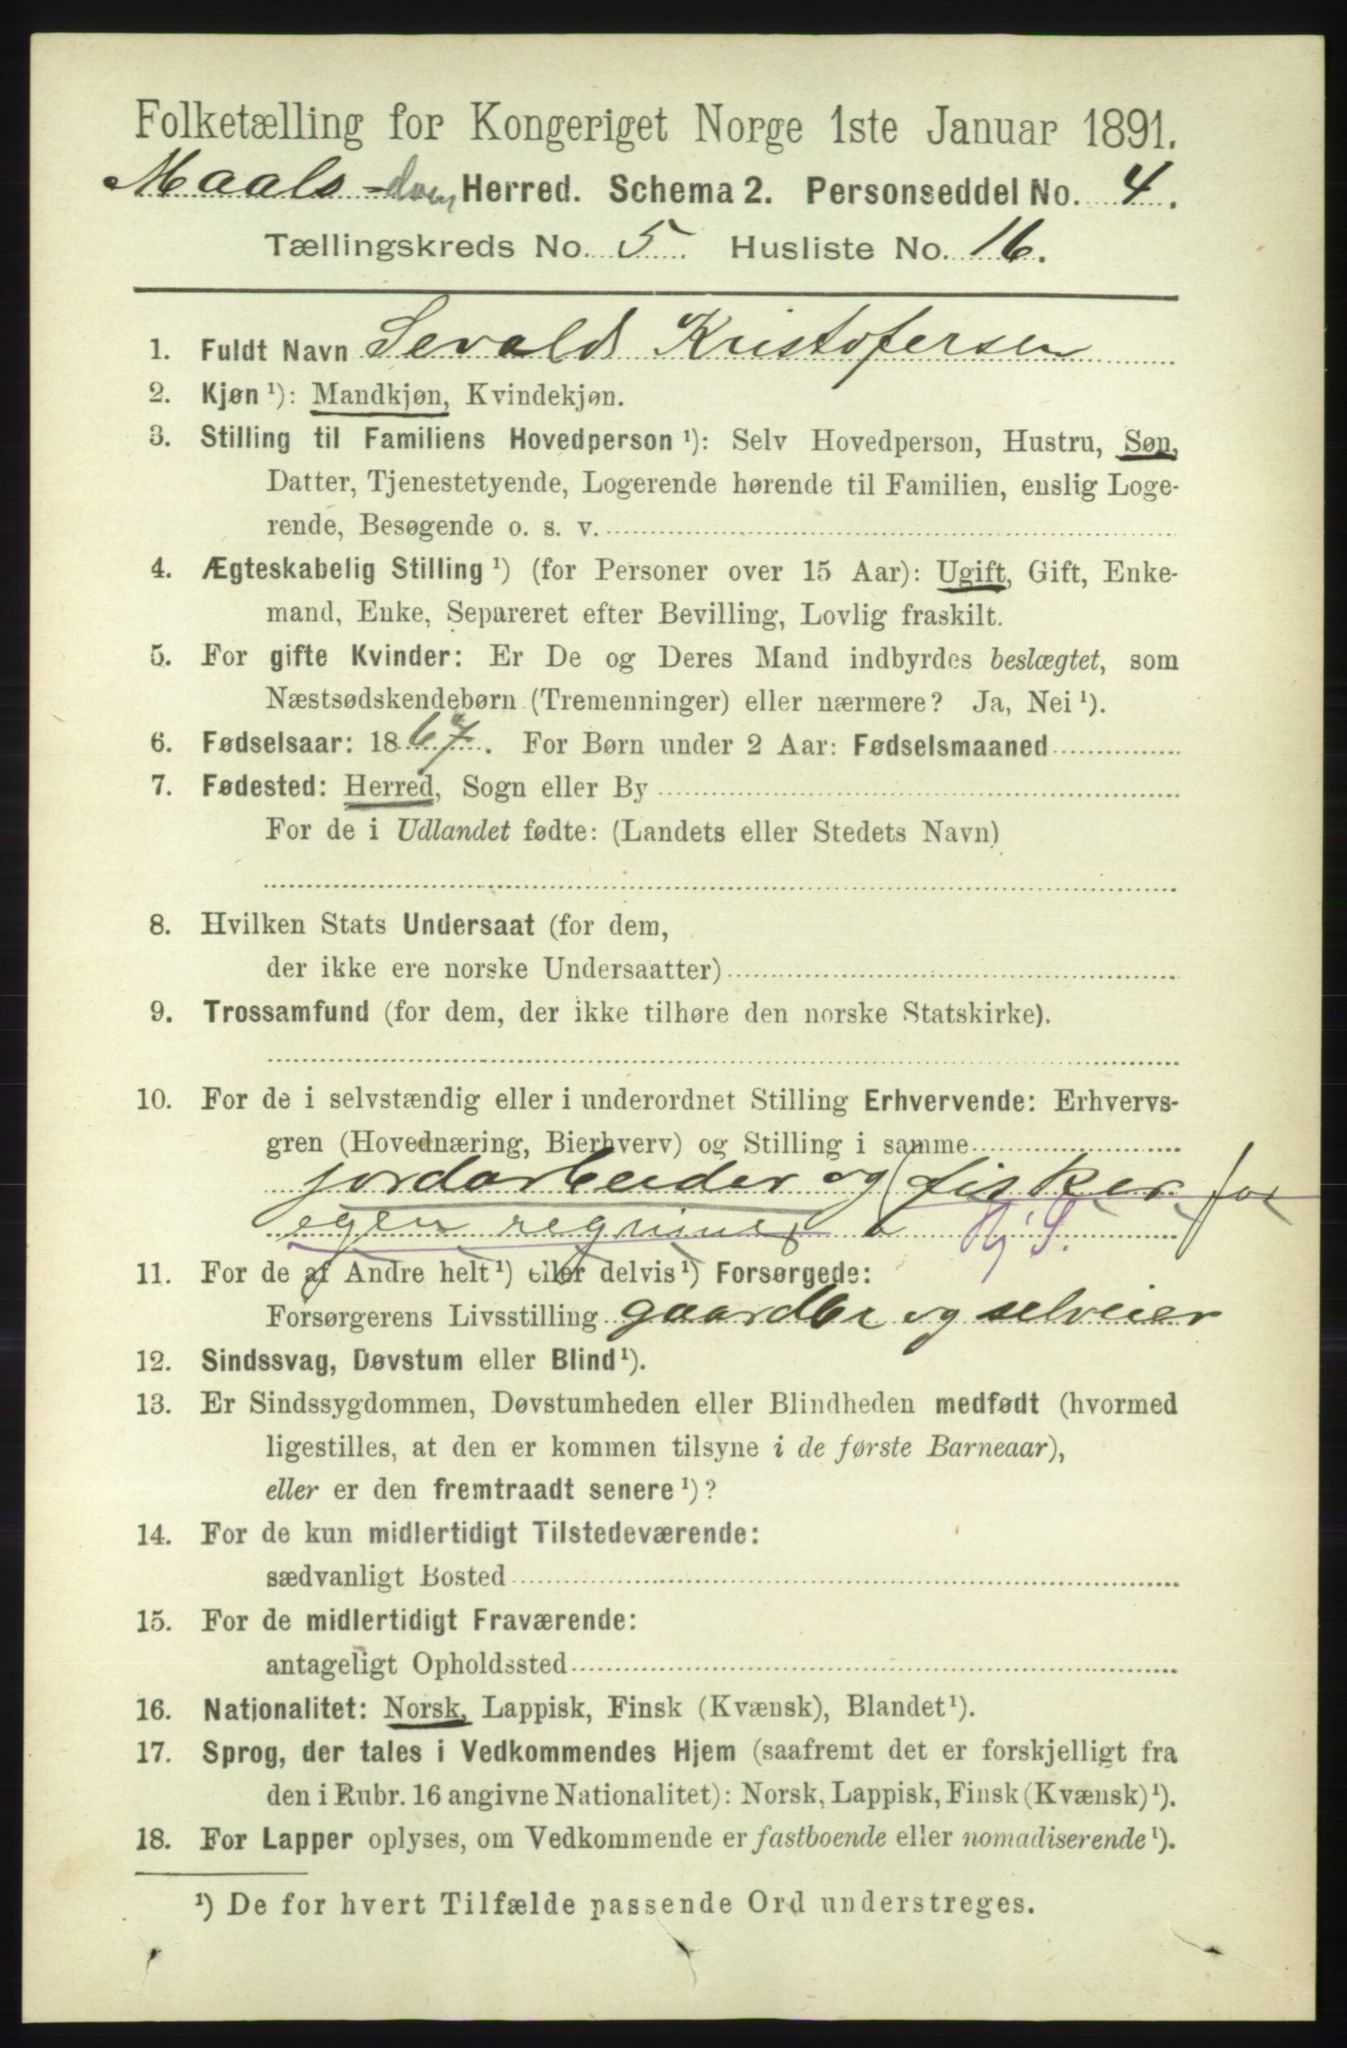 Folketælling for Kongeriget Norge 1ste Januar 1891.
Maals- Herred. Schema 2. Personseddel No. 4.
Tællingskreds No. 5. Husliste No. 16.
1. Fuldt Navn Sevald Kristofersen
2. Kjøn ¹): Mandkjøn, Kvindekjøn.
3. Stilling til Familiens Hovedperson ¹): Selv Hovedperson, Hustru, Søn,
Datter, Tjenestetyende, Logerende hørende til Familien, enslig Loge-
rende, Besøgende o. s. v.
4. Ægteskabelig Stilling ¹) (for Personer over 15 Aar): Ugift, Gift, Enke-
mand, Enke, Separeret efter Bevilling, Lovlig fraskilt.
5. For gifte Kvinder: Er De og Deres Mand indbyrdes beslægtet, som
Næstsødskendebørn (Tremenninger) eller nærmere? Ja, Nei ¹).
6. Fødselsaar: 1867. For Børn under 2 Aar: Fødselsmaaned
7. Fødested: Herred, Sogn eller By
For de i Udlandet fødte: (Landets eller Stedets Navn)
8. Hvilken Stats Undersaat (for dem,
der ikke ere norske Undersaatter)
9. Trossamfund (for dem, der ikke tilhøre den norske Statskirke).
10. For de i selvstændig eller i underordnet Stilling Erhvervende: Erhvervs-
gren (Hovednæring, Bierhverv) og Stilling i samme
jordarbeider og (fisker for
egen regning)
11. For de af Andre helt ¹) eller delvis ¹) Forsørgede:
Forsørgerens Livsstilling gaardbr og selveier
12. Sindssvag, Døvstum eller Blind ¹).
13. Er Sindssygdommen, Døvstumheden eller Blindheden medfødt (hvormed
ligestilles, at den er kommen tilsyne i de første Barneaar),
eller er den fremtraadt senere ¹)?
14. For de kun midlertidigt Tilstedeværende:
sædvanligt Bosted
15. For de midlertidigt Fraværende:
antageligt Opholdssted
16. Nationalitet: Norsk, Lappisk, Finsk (Kvænsk), Blandet ¹).
17. Sprog, der tales i Vedkommendes Hjem (saafremt det er forskjelligt fra
den i Rubr. 16 angivne Nationalitet): Norsk, Lappisk, Finsk (Kvænsk) ¹).
18. For Lapper oplyses, om Vedkommende er fastboende eller nomadiserende ¹).
¹) De for hvert Tilfælde passende Ord understreges.